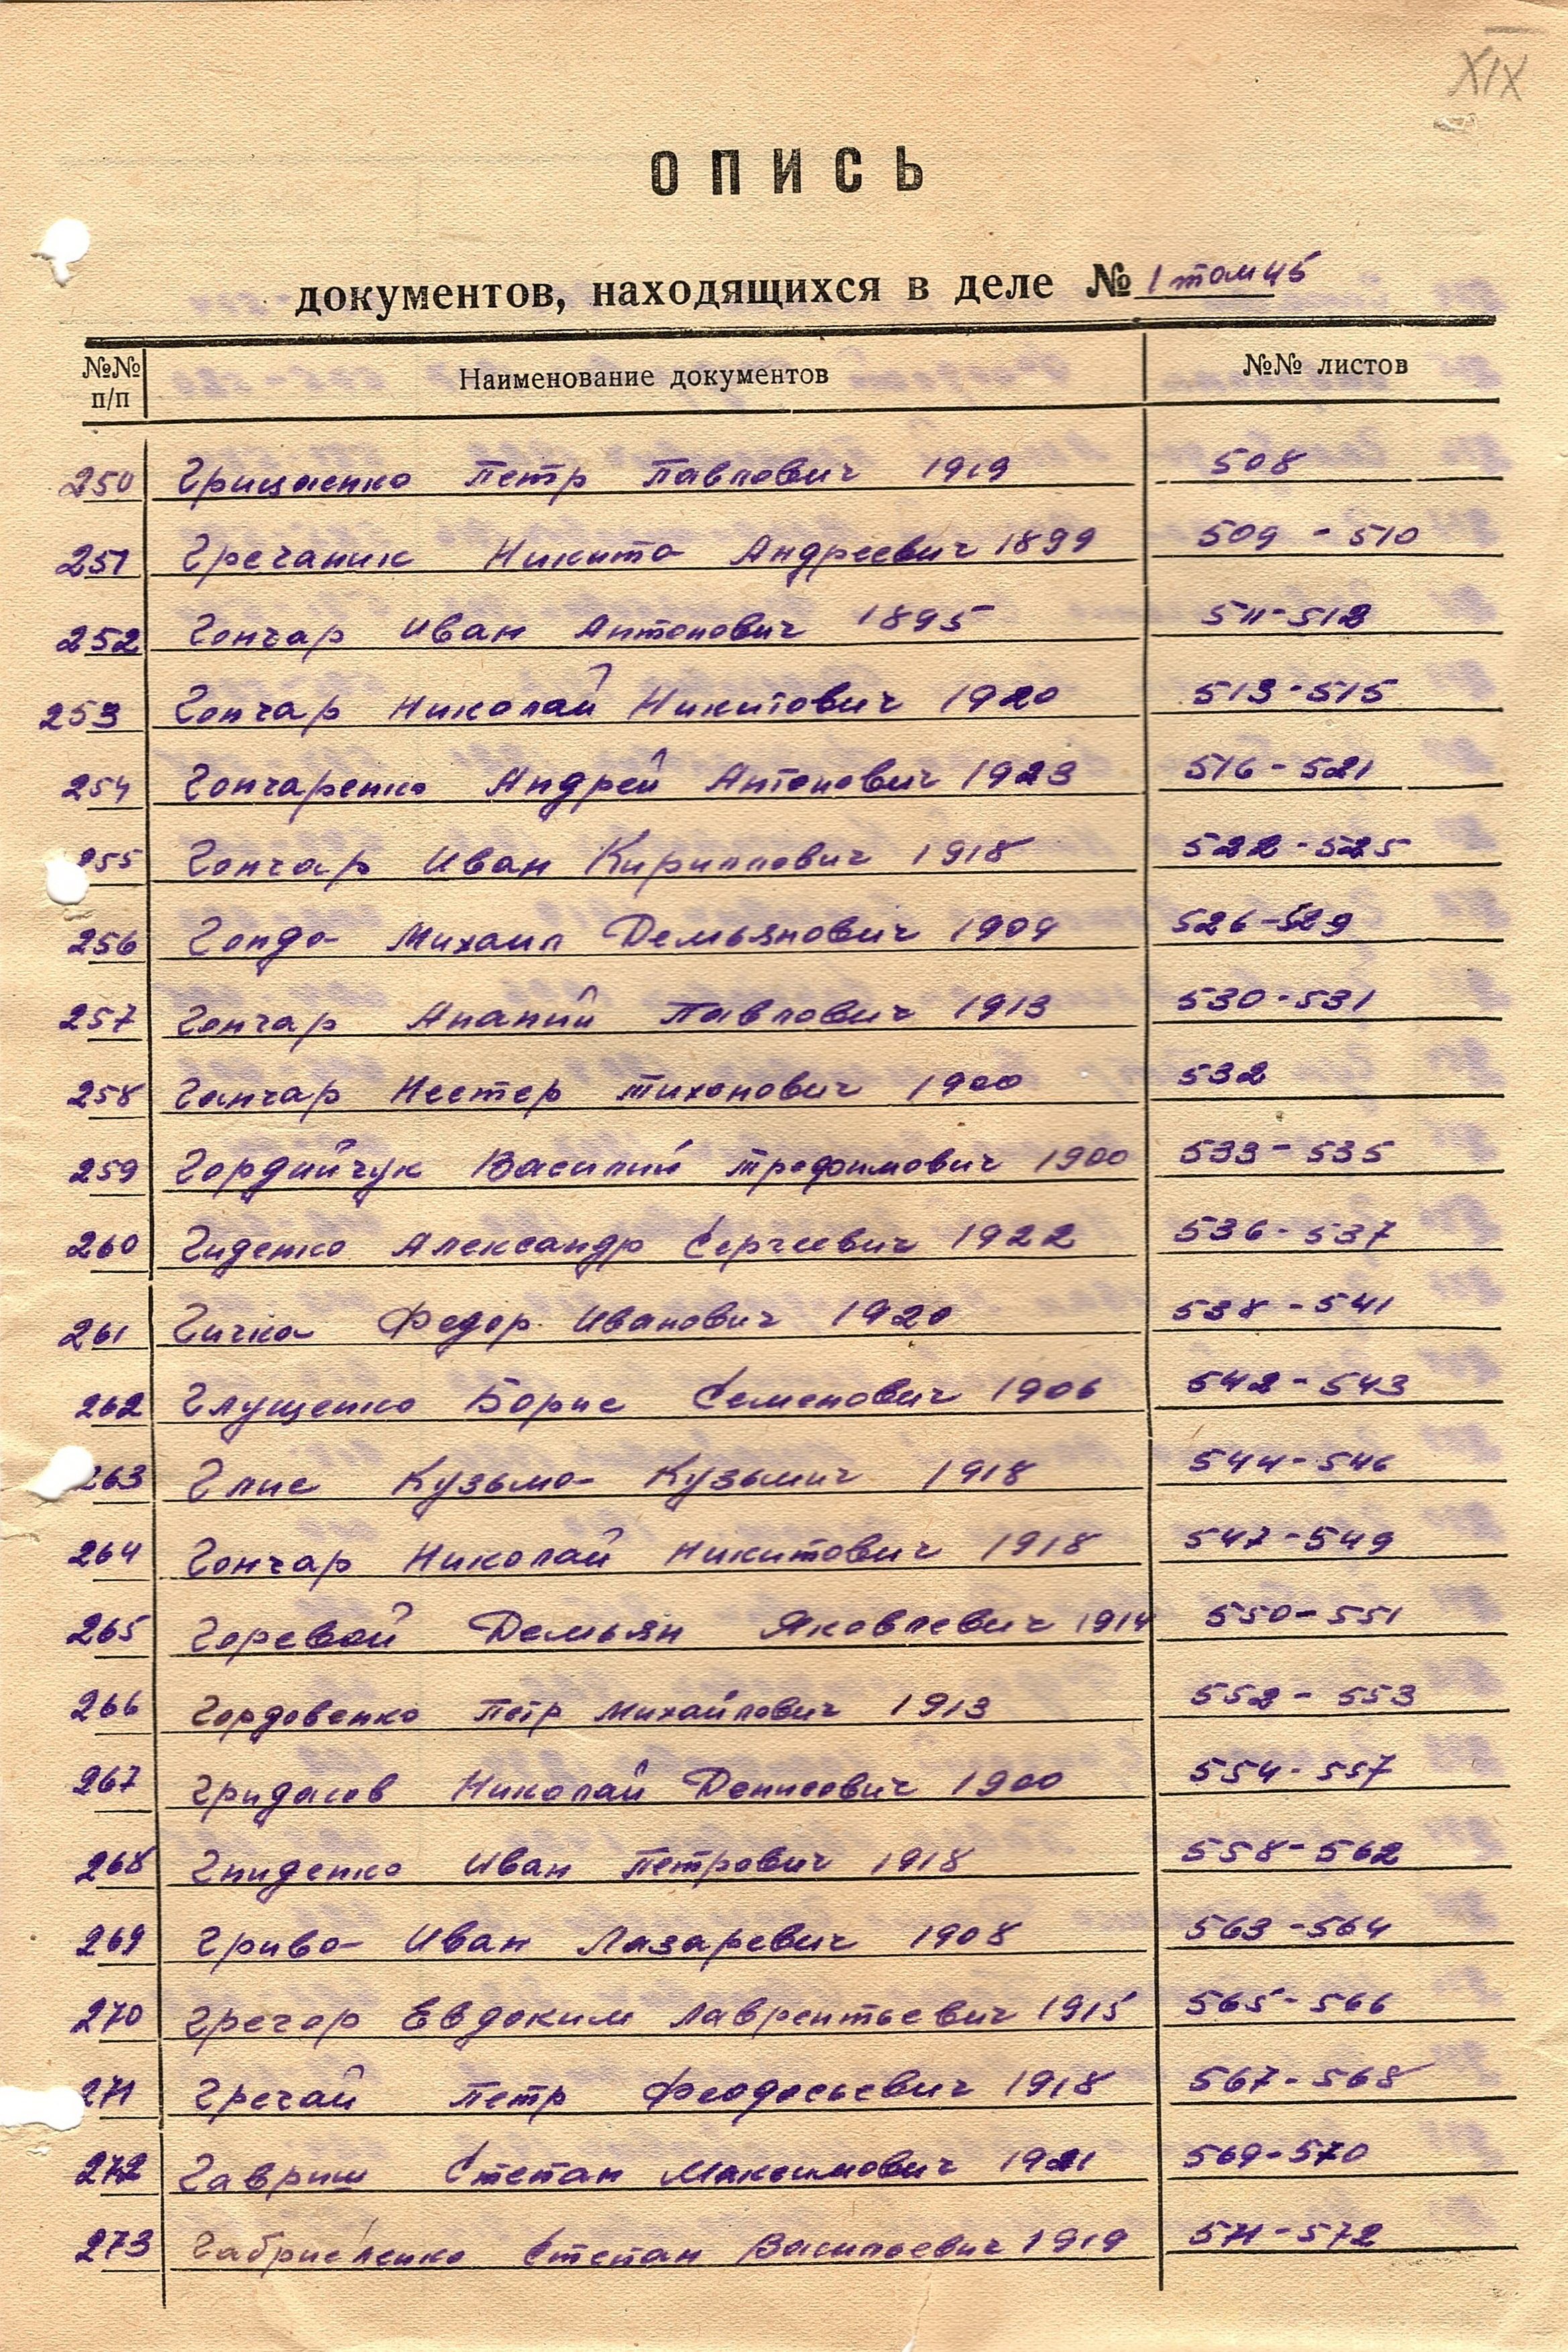 XIX
ОПИСЬ
документов, находящихся в деле № 1 том 45
№№ п/п Наименование документов №№ листов
250 Грищенко Петр Павлович 1919 508
251 Гречаник Никита Андреевич 1899 509 - 510
252 Гончар Иван Антонович 1895 511-512
253 Гончар Николай Никитович 1920 513-515
254 Гончаренко Андрей Антонович 1923 516-521
255 Гончар Иван Кириллович 1918 522-525
256 Михаил Демьянович 1904 526-529
257 Гончар Ананий Павлович 1913 530-531
258 Гончар Нестер Тихонович 1900 532
259 Гордийчук Василий Трофимович 1900 533-535
260 Гиденко Александр Сергеевич 1922 536-537
261 Гичка Федор Иванович 1920 538-541
262 Глущенко Борис Семенович 1906 542-543
263 Глис Кузьма Кузьмич 1918 544-546
264 Гончар Николай Никитович 1918 547-549
265 Горевой Демьян Яковлевич 1914 550-551
266 Гордовенко Петр Михайлович 1913 552-553
267 Гридасов Николай Денисович 1900 554-557
268 Гниденко Иван Петрович 1918 558-562
269 Грива Иван Лазаревич 1908 563-564
270 Евдоким Лаврентьевич 1915 565-566
271 Гречай Петр Феодосьевич 1918 567-568
272 Гавриш Степан Максимович 1921 569-570
273 Габриеленко Степан Васильевич 1919 571-572